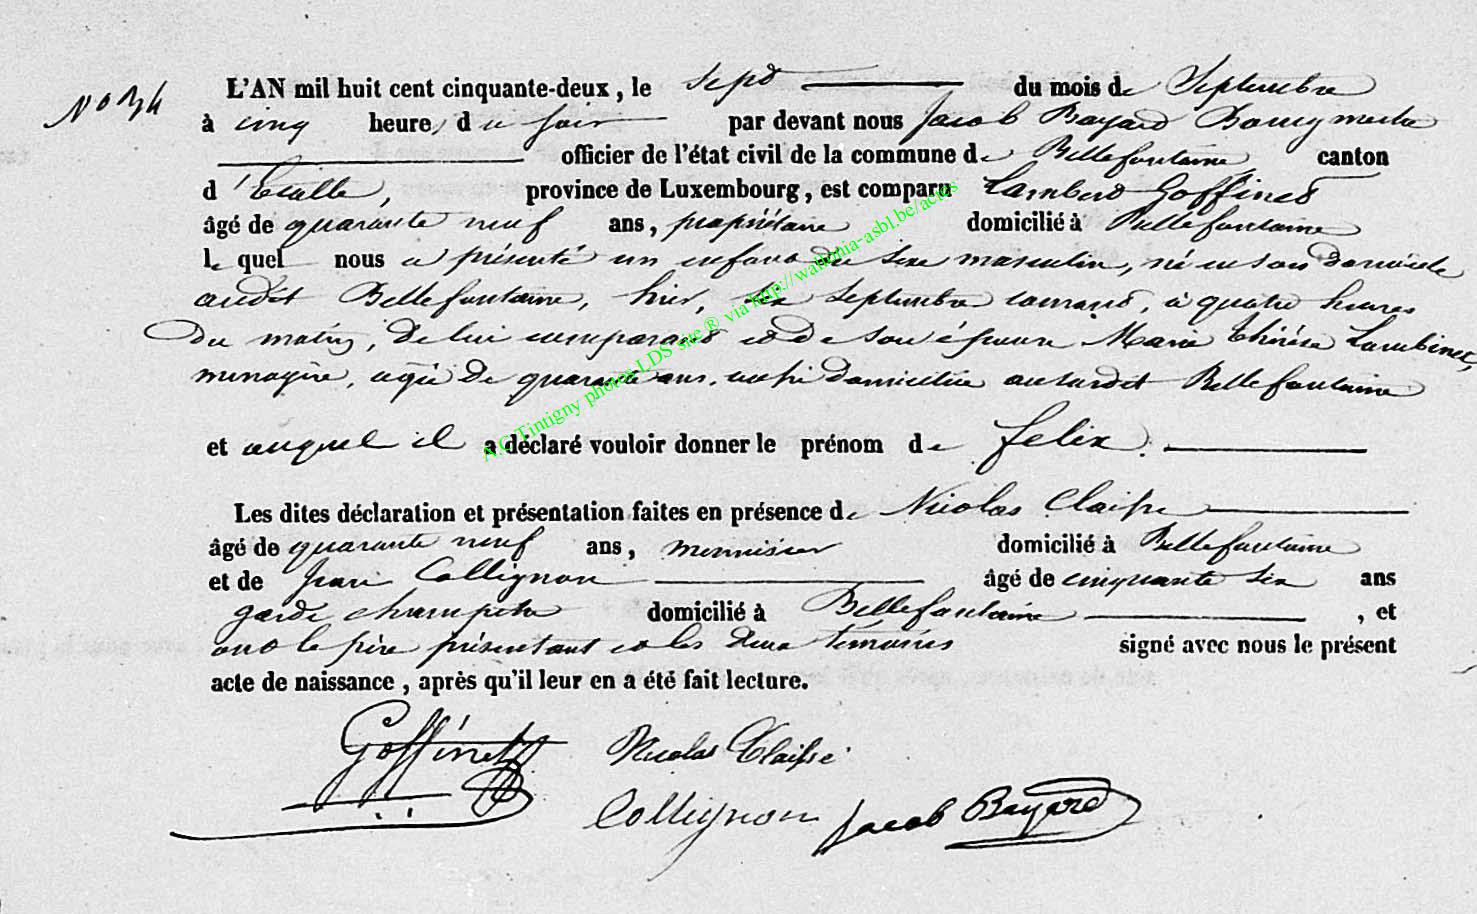 No 34
L'AN mil huit cent cinquante-deux, le sept du mois de Septembre
à cinq heures du soir par devant nous Jacob Bayard Bourgmestre
officier de l'état civil de la commune de Bellefontaine canton
d'Etalle, province de Luxembourg, est comparu Lambert Goffinet
âgé de quarante neuf ans, propriétaire domicilié à Bellefontaine
le quel nous a présenté un enfant du sexe masculin, né en son domicile
audit Bellefontaine, hier, six Septembre courant, à quatre heures
du matin, de lui comparant et de son épouse Marie Thérèse Lambinet,
ménagère, agée de quarante ans, aussi domiciliée au susdit Bellefontaine
et auquel il a déclaré vouloir donner le prénom de felix.
Les dites déclaration et présentation faites en présence de Nicolas Claisse
âgé de quarante neuf ans, menuisier domicilié à Bellefontaine
et de Jean Collignon âgé de cinquante six ans
garde champetre domicilié à Bellefontaine, et
ont le père présentant et les deux témoins signé avec nous le présent
acte de naissance, après qu'il leur en a été fait lecture.
Goffinet Nicolas Claisse
Collignon Jacob Bayard
A.C. Tintigny photos LDS site ® via http://wallonia-asbl.be/actes